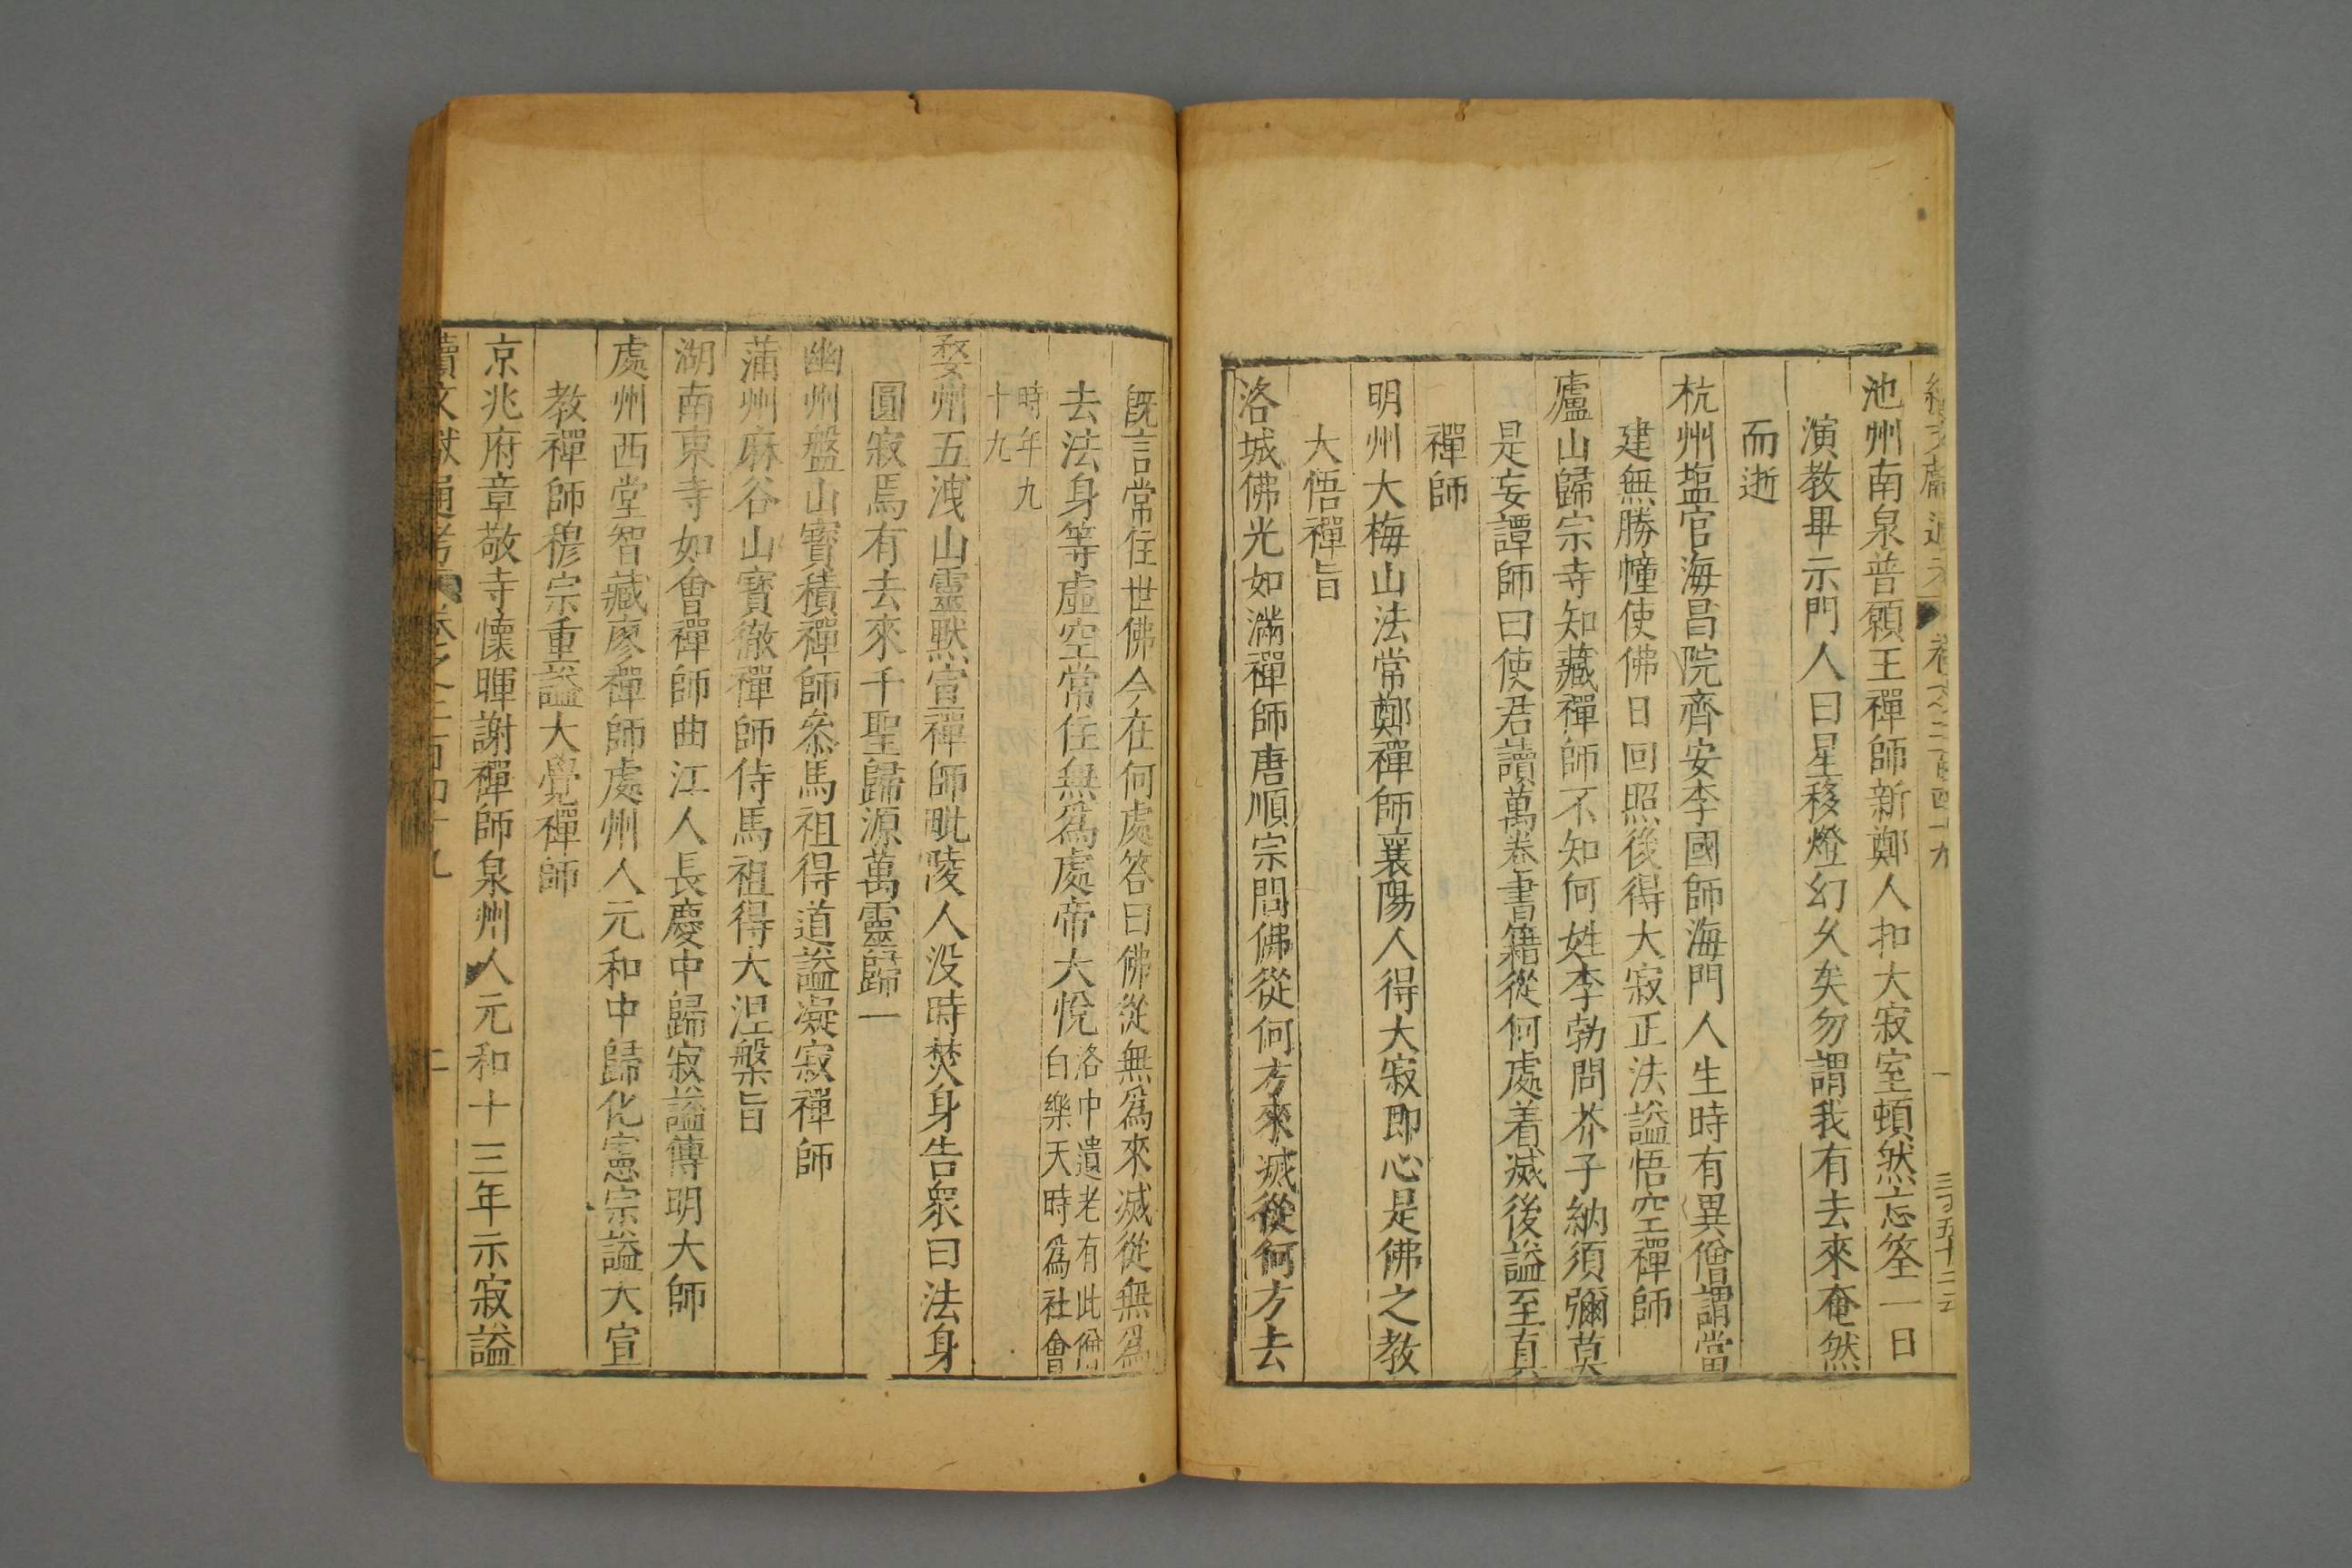 池州南泉普願王禪師新鄭人扣大寂室頓然忘筌一日
演教畢示門人曰星移燈幻久矣勿謂我有去來奄然
而逝
杭州塩官海昌院齊安李國師海門人生時有異僧謂當
建無勝幢使佛日回照後得大寂正法謚悟空禪師
廬山歸宗寺知藏禪師不知何姓李勃問芥子納須彌莫
是妄譚師曰使君讀萬卷書籍從何處着滅後謚至真
禪師
明州大梅山法常鄭禪師襄陽人得大寂即心是佛之教
大悟禪旨
洛城佛光如滿禪師唐順宗問佛從何方來滅從何方去
既言常住世佛今在何處答曰佛從無爲來滅從無爲
去法身等虛空常住無爲處帝大悅洛中遺老有此僧白樂天時爲社會
時年九十九
婺州五洩山靈默宣禪師毗陵人没時焚身告衆曰法身
圓寂焉有去來千聖歸源萬靈歸一
幽州盤山寶積禪師叅馬祖得道謚凝寂禪師
蒲州麻谷山寶徹禪師侍馬祖得大涅槃旨
湖南東寺如會禪師曲江人長慶中歸寂謚傳明大師
處州西堂智藏廖禪師處州人元和中歸化憲宗謚大宣
教禪師穆宗重謚大覺禪師
京兆府章敬寺懷暉謝禪師泉州人元和十三年示寂謚
二